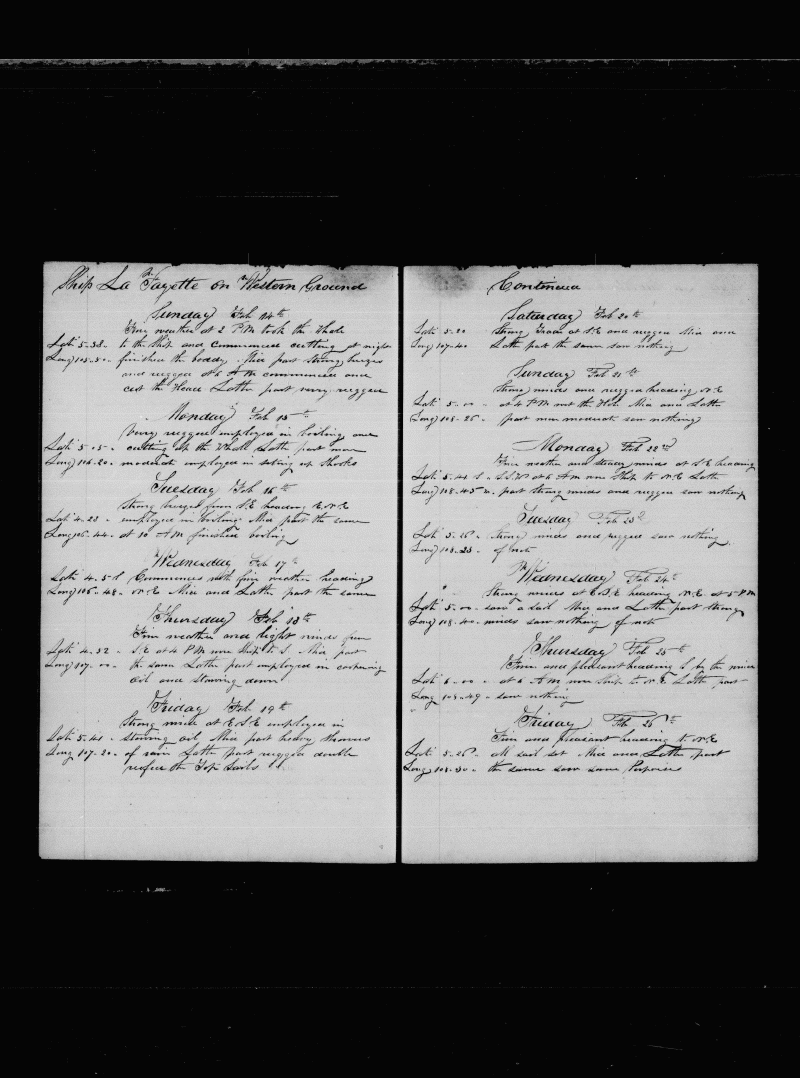 Ship La Fayette on Western Ground
Sunday Feb 14th
Fine weather at 2 PM took the whale
Lati 5-38- to the ship and commenced cutting at night
Long 105-50- finished the boddy Mid part strong brezes
and rugged at 6 AM commenced and
cut the Head Latter part very rugged
Monday Feb 15th
Very rugged employed in boiling and
Lati 5-05- cutting up the Whall Latter part more
Long 106-20- moderate employed in seting up Shooks
Tuesday Feb 16th
Strong brezes from S.E heading N.N.E
Lati 4-22- employed in boiling Mid part the same
Long 106-44- at 10 AM finished boiling
Wednesday Feb 17th
Lati 4-51 Commences with fine weather heading
Long 106-48- N.E Mid and Latter part the same
Thursday Feb 18th
Fine weather and light winds from
Lati 4-32- S.E at 4 PM wore Ship to S. Mid part
Long 107-00- the same Latter part employed in
oil and stowing down
Friday Feb 19th
Strong wind at E.S.E employed in
Lati 5-41- stowing oil Mid part heavy showers
Long 107-20- of rain Latter part rugged double
reefed the Top Sails
Continued
Saturday Feb 20th
Lati 5-20 Strong at S.E and rugged Mid and
Long 107-40 Latter part the same saw nothing
Sunday Feb 21th
Strong winds and rugged heading N.E
Lati 5-00- at 4 PM Mid and Latter
Long 108-26- part more moderate saw nothing
Monday Feb 22nd
Fine weather and steady winds at S.E heading
Lati 5-41 S- S.S.W at 6 AM wore Ship to N.E Latter
Long 108-45 W. part strong winds and rugged saw nothing
Tuesday Feb 23d
Lati 5-25- strong winds and rugged saw nothing
Long 108-23- of note
Wednesday Feb 24th
Strong winds at E.S.E heading N.E at 5 PM
Lati 5-00- saw a sail Mid and Latter part strong
Long 108-40- winds saw nothing of note
Thursday Feb 25th
Fine and pleasant heading S by the wind
Lati 6-00- at 6 AM wore Ship to N.E Latter part
Long 108-49- saw nothing
Friday Feb 26th
Fine and pleasant heading to N.E
Lati 5-26- all sail set Mid and Latter part
Long 108-30- the same saw some Porpoises